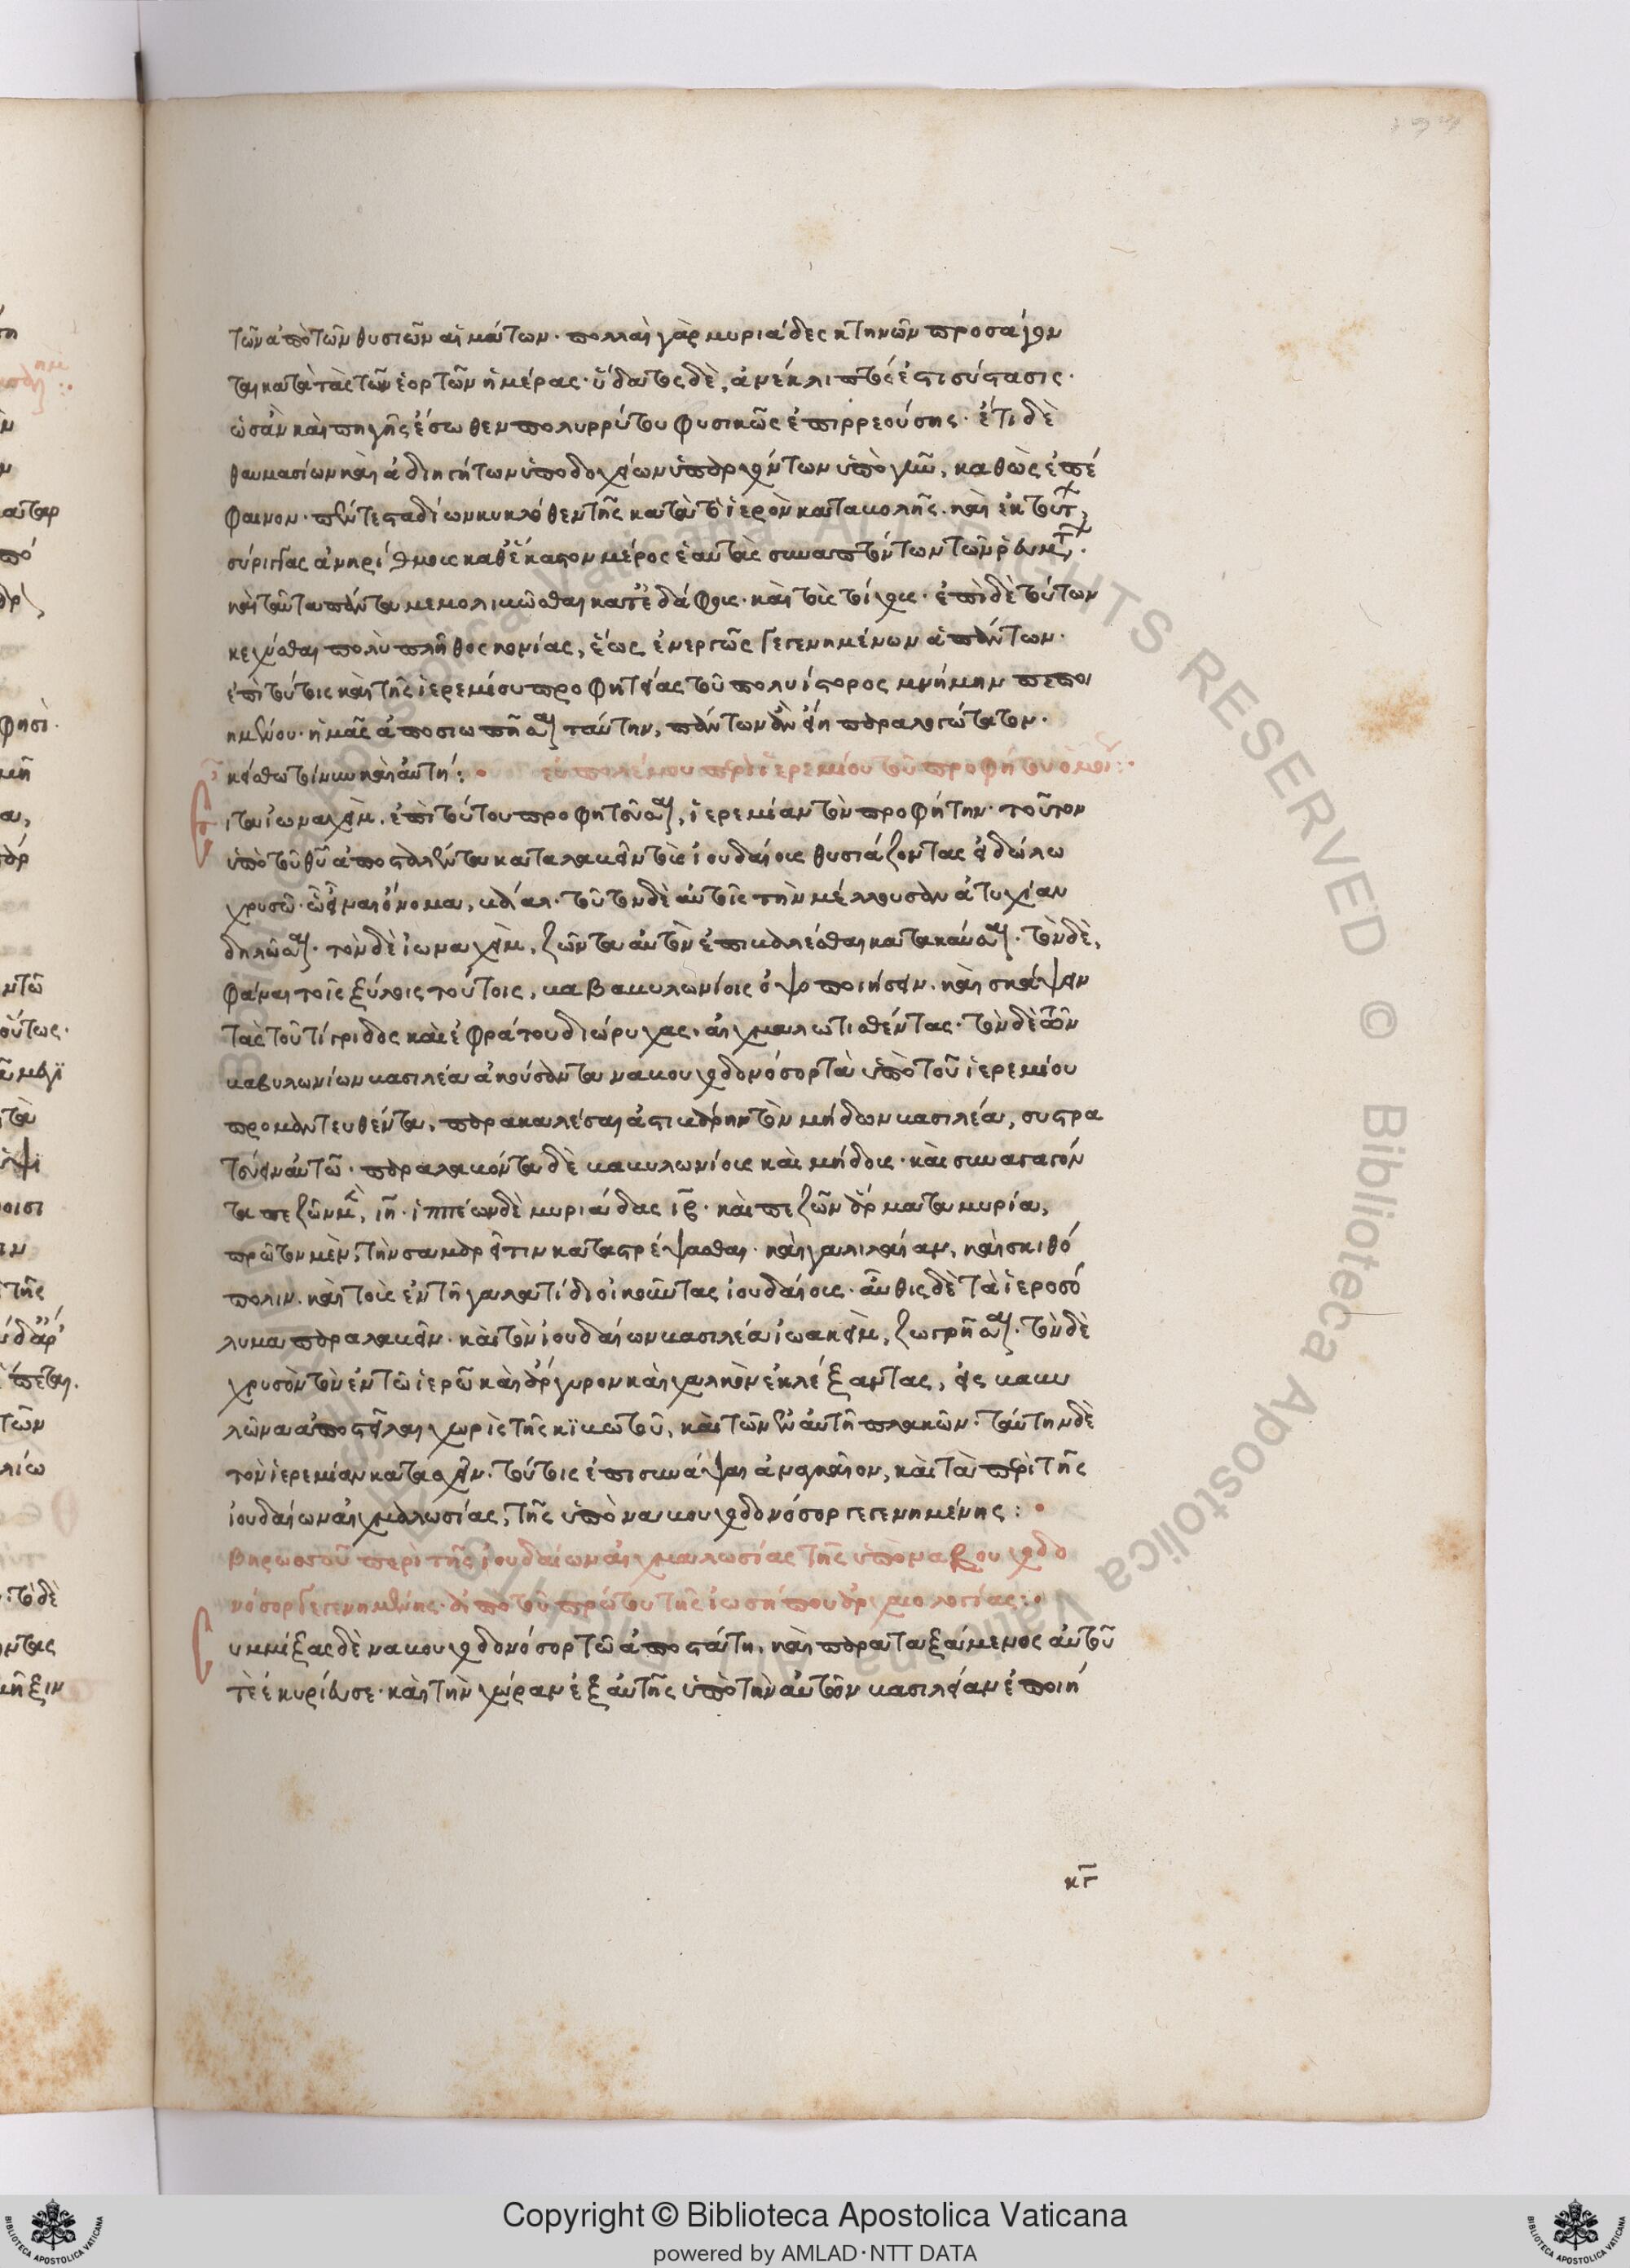 τῶν ἀπὸ τῶν θυσιῶν αἱμάτων· πολλαὶ γὰρ μυριάδες κτηνῶν προσάγον
ται κατὰ τὰς τῶν ἑορτῶν ἡμέρας· ὕδατος δὲ, ἀνέκλιπτός ἐστι σύστασις·
ὡσὰν καὶ πηγῆς ἔσωθεν πολυρρύτου φυσικῶς ἐπιρρεούσης· ἔτι δὲ
θαυμασίων καὶ ἀδιηγήτων ὑποδοχείων ὑπαρχόντων ὑπὸ γῆν, καθὼς ἐπέ
φαινον· πέντε σταδίων κυκλόθεν τῆς κατὰ τὸ ἱερὸν καταβολῆς· καὶ ἑκ τούτ
σύριγγας ἀναρίθμους καθ' ἕκαστον μέρος ἑαυτὰς συναπτόντων τῶν ῥευμτ·
καὶ ταῦτα πάντα μεμολιβῶσθαι κατ' ἐδάφους· καὶ τοὺς τοίχους· ἐπὶ δὲ τούτων
κεχύσθαι πολὺ πλῆθος κονίας, ἕως ἐνεργῶς γεγενημένων ἁπάντων·
ἐπὶ τούτοις καὶ τῆς ἱερεμίου προφητείας τοῦ πολυίστορος μνήμην πεποι
ημένου· ἡμᾶς ἀποσιωπῆσαι ταύτην, πάντων ἂν εἴη παραλογώτατον·
κείσθω τοίνυν καὶ αὐτή: εὐπολέμου περὶ ἱερεμίου τοῦ προφήτου ὁμοί:·
ἶτα ἰωναχείμ. ἐπὶ τούτου προφητεῦσαι, ἱερεμίαν τὸν προφήτην· τοῦτον
ὑπὸ τοῦ θῦ ἀποσταλέντα καταλαβεῖν τοὺς ἰουδαίους θυσιάζοντας εἰδώλω
χρυσῶ· ὧ εἶναι ὄνομα, βάαλ· τοῦτον δὲ αὐτοῖς τὴν μέλλουσαν ἀτυχίαν
δηλῶσαι· τὸν δὲ ἰωναχεὶμ, ζῶντα αὐτὸν ἐπιβαλέσθαι κατακαῦσαι· τὸν δὲ,
φάναι τοῖς ξύλοις τούτοις, βαβυλωνίοις ὀψοποιήσειν· καὶ σκάψειν
τὰς τοῦ τίγριδος καὶ εὐφράτου διώρυχας· αἰχμαλωτισθέντας· τὸν δὲ τῶν
βαβυλωνίων βασιλέα ἀκούσαντα ναβουχοδονόσορ τὰ ὑπὸ τοῦ ἱερεμίου
προμαντευθέντα, παρακαλέσαι ἀστιβάρην τὸν μήδων βασιλέα, συστρα
τεύειν αὐτῶ· παραλαβόντα δὲ βαβυλωνίους καὶ μήδους· καὶ συναγαγόν
τα πεζῶν μὲν, ιη· ἱππέων δὲ μυριάδας ιβ· καὶ πεζῶν ἅρματα μυρία,
πρῶτον μὲν, τὴν σαμαρεῖτιν καταστρέψασθαι· καὶ γαλιλαίαν, καὶ σκυθό
πολιν· καὶ τοὺς ἐν τῆ γαλατίδι οἰκοῦντας ἰουδαίους· αὖθις δὲ τὰ ἱεροσό
λυμα παραλαβεῖν· καὶ τὸν ἰουδαίων βασιλέα ἰωακεὶμ, ζωγρῆσαι· τὸν δὲ
χρυσὸν τὸν ἐν τῶ ἱερῶ καὶ ἄργυρον καὶ χαλκὸν ἐκλέξαντας, εἰς βαβυ
λῶνα ἀποστεῖλαι χωρὶς τῆς κιβωτοῦ, καὶ τῶν ἐν αὐτῆ πλακῶν· ταύτην δὲ
τὸν ἱερεμίαν κατασχεῖν· τούτοις ἐπισυνάψαι ἀναγκαῖον, καὶ τὰ περὶ τῆς
ἰουδαίων αἰχμαλωσίας, τῆς ὑπὸ ναβουχοδονόσορ γεγενημένης:
βηρωσσοῦ περὶ τῆς ἰουδαίων αἰχμαλωσίας τῆς ὑπὸ ναβουχοδο
νόσορ γεγενημένης· ἀπὸ τοῦ πρώτου τῆς ἰωσήπου ἀρχαιολογίας:
υμμίξας δὲ ναβουχοδονόσορ τῶ ἀποστάτη, καὶ παραταξάμενος αὐτοῦ
τὲ ἐκυρίευσε· καὶ τὴν χώραν ἐξ αὐτῆς ὑπὸ τὴν αὐτῶν βασιλείαν ἐποιή
κγ
Copyright © Biblioteca Apostolica Vaticana
powered by AMLAD·NTT DATA